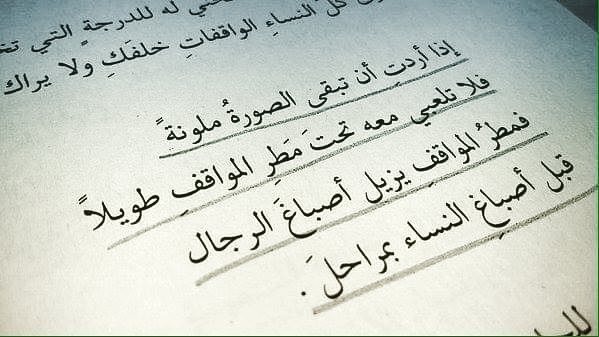 له للدرجةِ التي
كل النساءِ الواقفاتِ خلفَكِ ولا يراك
إذا أردتِ أن تبقى الصورةُ ملونةً
فلا تلعبي معه تحتَ مَطرِ المواقفِ طويلاً
فمطرُ المواقفِ يزيل أصباغَ الرجال
قبل أصباغِ النساء بمراحلَ .